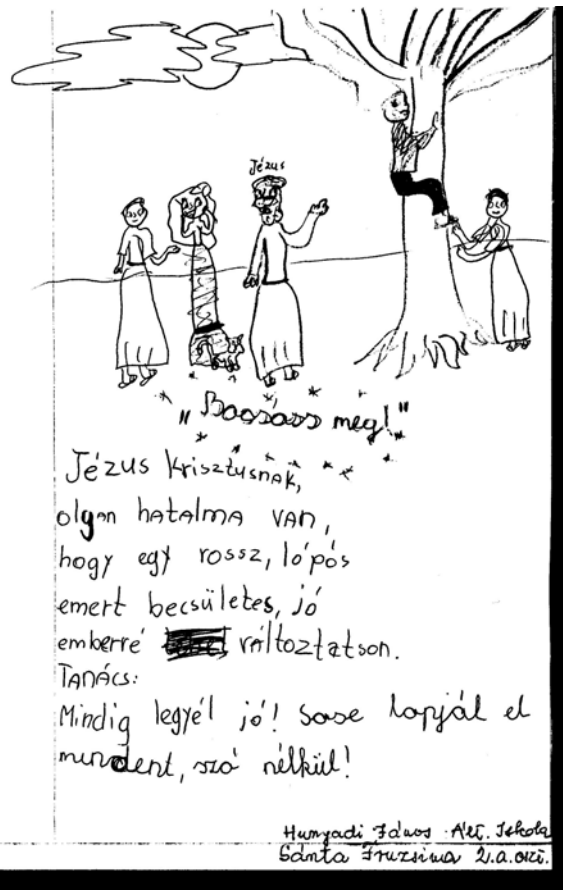 Jézus
"Bocsáss meg!"
Jézus Krisztusnak,
olyan hatalma van,
hogy egy rossz, lópós
emert becsületes, jó
emberré változtatson.
TANÁCS:
Mindig legyél jó! Sose lopjál el
mindent, szó nélkül!
Hunyadi János Ált. Iskola
Sánta Fruzsina 2.a.oszt.